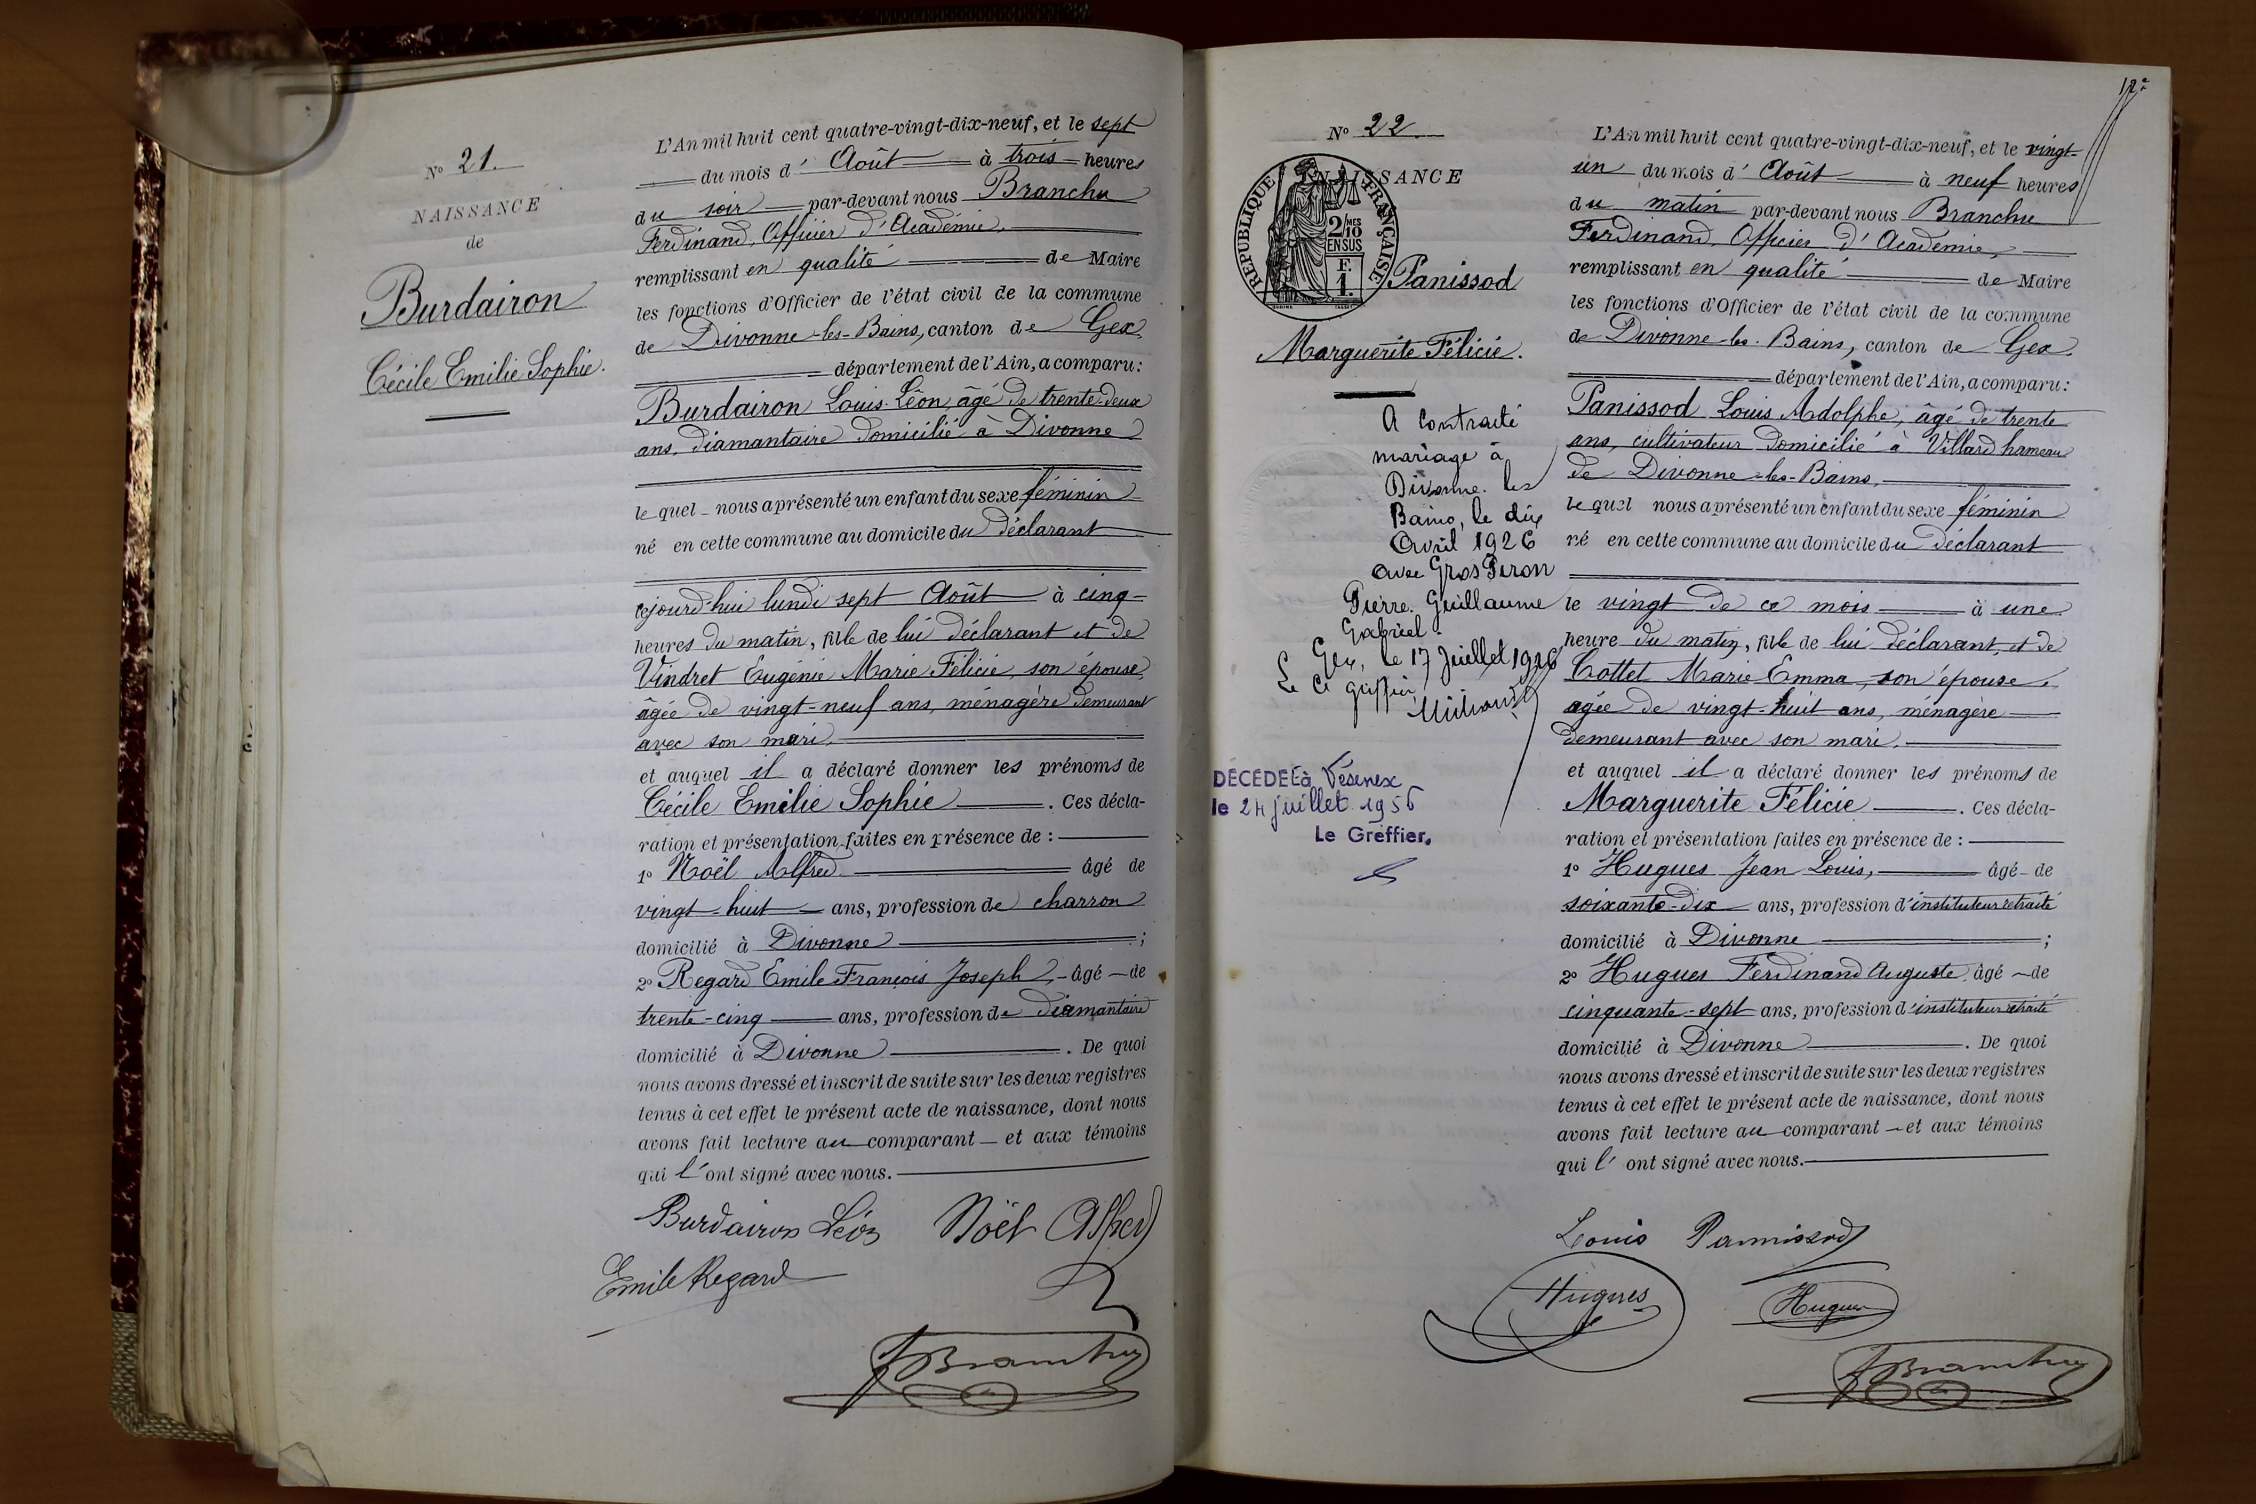 Nº 21.
NAISSANCE
de
Burdairon
Cécile Emilie Sophie.
L'An mil huit cent quatre-vingt-dix-neuf, et le sept
du mois d' Août à trois heures
du soir par-devant nous Branchu
Ferdinand, Officier d'Académie,
remplissant en qualité de Maire
les fonctions d'Officier de l'état civil de la commune
de Divonne-les-Bains, canton de Gex,
département de l'Ain, a comparu:
Burdairon Louis Léon, âgé de trente-deux
ans, diamantaire domicilié à Divonne
le quel nous a présenté un enfant du sexe féminin
né en cette commune au domicile du déclarant
cejourd'hui lundi sept Août à cinq
heures du matin, fille de lui déclarant et de
Vindret Eugénie Marie Félicie, son épouse,
âgée de vingt-neuf ans, ménagère demeurant
avec son mari.
et auquel il a déclaré donner les prénoms de
Cécile Emilie Sophie. Ces décla-
ration et présentation faites en présence de :
1º Noël Alfred âgé de
vingt-huit ans, profession de charron
domicilié à Divonne ;
2º Regard Emile François Joseph, âgé de
trente-cinq ans, profession de diamantaire
domicilié à Divonne. De quoi
nous avons dressé et inscrit de suite sur les deux registres
tenus à cet effet le présent acte de naissance, dont nous
avons fait lecture au comparant et aux témoins
qui l'ont signé avec nous.
Burdairon Léon Noël Alfred
Emile Regard
Branchu
12e
Nº 22
NAISSANCE
REPUBLIQUE FRANÇAISE
2/10 MES
EN SUS
F.
1.
Panissod
Marguerite Félicie.
A contracté
mariage à
Divonne-les
Bains, le dix
Avril 1926
avec Gros Piron
Pierre Guillaume
Gabriel
Gex, le 17 Juillet 1926
Le Cs Greffier
DÉCÉDÉE à Vésenex
le 24 juillet 1956
Le Greffier.
L'An mil huit cent quatre-vingt-dix-neuf, et le vingt-
un du mois d' Août à neuf heures
du matin par-devant nous Branchu
Ferdinand, Officier d'Académie,
remplissant en qualité de Maire
les fonctions d'Officier de l'état civil de la commune
de Divonne-les-Bains, canton de Gex,
département de l'Ain, a comparu:
Panissod Louis Adolphe, âgé de trente
ans, cultivateur domicilié à Villard hameau
de Divonne-les-Bains,
le quel nous a présenté un enfant du sexe féminin
né en cette commune au domicile du déclarant
le vingt de ce mois à une
heure du matin, fille de lui déclarant, et de
Cottet Marie Emma, son épouse,
agée de vingt-huit ans, ménagère
demeurant avec son mari.
et auquel il a déclaré donner les prénoms de
Marguerite Félicie. Ces décla-
ration et présentation faites en présence de :
1º Hugues Jean Louis, âgé de
soixante-dix ans, profession d'instituteur retraité
domicilié à Divonne ;
2º Hugues Ferdinand Auguste, âgé de
cinquante-sept ans, profession d'instituteur retraité
domicilié à Divonne. De quoi
nous avons dressé et inscrit de suite sur les deux registres
tenus à cet effet le présent acte de naissance, dont nous
avons fait lecture au comparant et aux témoins
qui l'ont signé avec nous.
Louis Pannissod
Hugues Hugues
Branchu